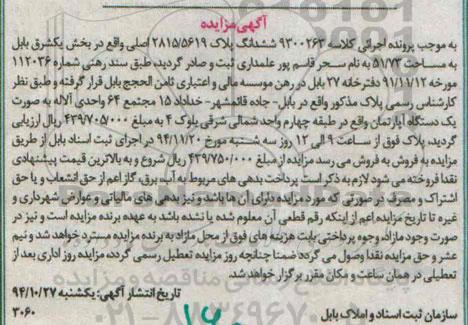 آگهی مزایده
به موجب پرونده اجرائی کلاسه ۹۳۰۰۲۶۳ ششدنگ پلاک ۲۸۱۵/۵۶۱۹ اصلی واقع در بخش یکشرق بابل
به مساحت ۵۱/۷۳ به نام سحر قاسم پور علمداری ثبت و صادر گردید، طبق سند رهنی شماره ۱۱۲۰۳۶
مورخه ۹۱/۱۱/۱۲ دفترخانه ۲۷ بابل در رهن موسسه مالی و اعتباری ثامن الحجج بابل قرار گرفته و طبق نظر
کارشناس رسمی پلاک مذکور واقع در بابل- جاده قائمشهر- خداداد ۱۵ مجتمع ۶۴ واحدی آلاله به صورت
یک دستگاه آپارتمان واقع در طبقه چهارم واحد شمالی شرقی بلوک ۴ به مبلغ ۴۳۹/۷۰۵/۰۰۰ ریال ارزیابی
گردید، پلاک فوق از ساعت ۹ الی ۱۲ روز سه شنبه مورخ ۹۴/۱۱/۲۰ در اجرای ثبت اسناد بابل از طریق
مزایده به فروش به فروش می رسد مزایده از مبلغ ۴۳۹/۷۵۰/۰۰۰ ریال شروع و به بالاترین قیمت پیشنهادی
نقدا فروخته می شود لازم به ذکر است پرداخت بدهی های مربوط به آب، برق، گاز اعم از حق انشعاب و یا حق
اشتراک و مصرف در صورتی که مورد مزایده دارای آن ها باشد و نیز بدهی های مالیاتی و عوارض شهرداری و
غیره تا تاریخ مزایده اعم از اینکه رقم قطعی آن معلوم شده یا نشده باشد به عهده برنده مزایده است و نیز در
صورت وجود مازاد، وجوه پرداختی بابت هزینه های فوق از محل مازاد به برنده مزایده مسترد خواهد شد و نیم
عشر و حق مزایده نقدا وصول می گردد ضمنا چنانچه روز مزایده تعطیل رسمی گردد مزایده روز اداری بعد از
تعطیلی در همان ساعت و مکان مقرر برگزار خواهد شد.
تاریخ انتشار آگهی: یکشنبه ۹۴/۱۰/۲۷
سازمان ثبت اسناد و املاک بابل
۳۰۶۰